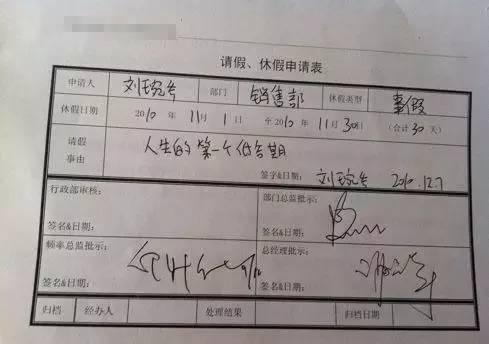 请假、休假申请表
申请人 刘琬 部门 销售部 休假类型 事假
休假日期 2010 年 11 月 1 日 至 2010 年 11 月 30 日 (合计 30 天)
请假事由 人生的第一个低谷期
签字&日期: 刘琬 2010.12.7
行政部审核: 部门总监批示:
签名&日期: 签名&日期:
频率总监批示: 总经理批示:
签名&日期: 签名&日期:
归档 经办人 处理结果 归档日期